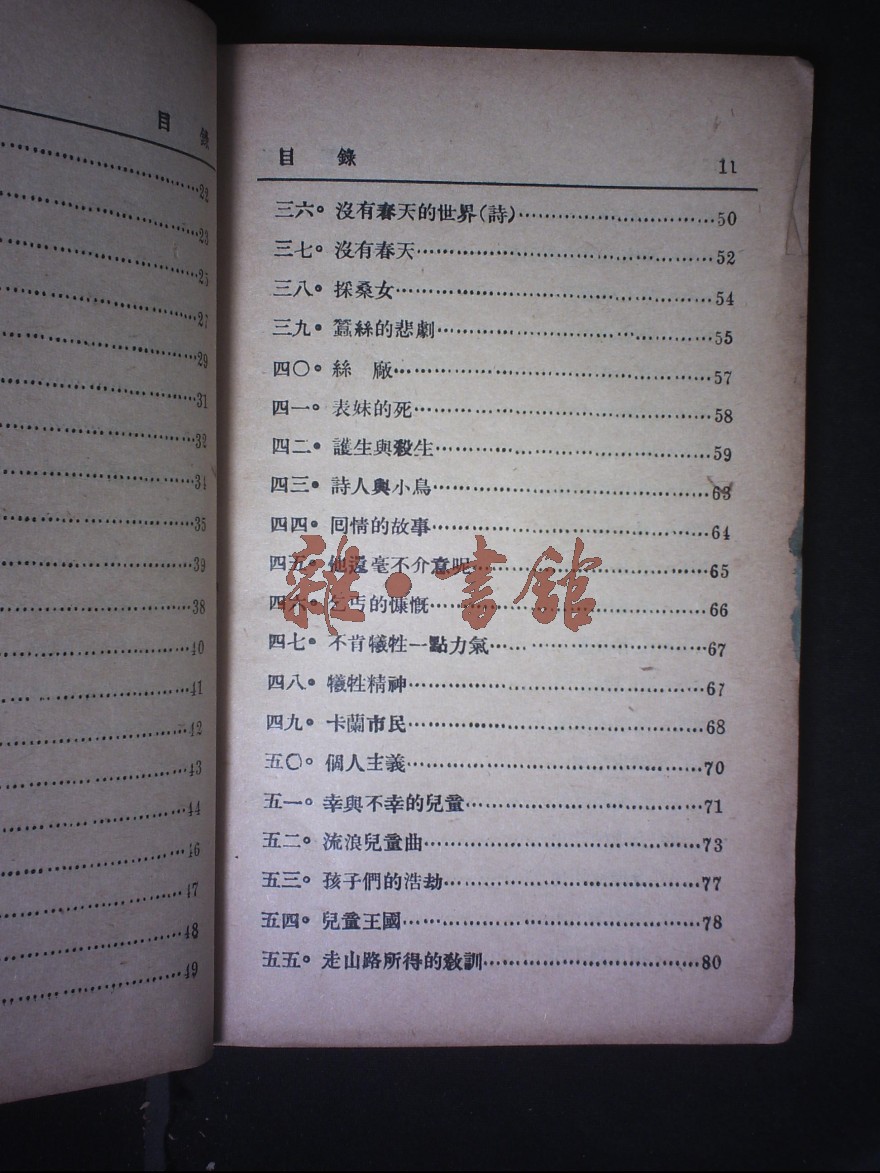 目 錄
22
23
25
27
29
31
32
34
35
39
38
40
41
42
43
44
46
47
48
49
目 錄 11
三六。沒有春天的世界(詩)……50
三七。沒有春天……52
三八。採桑女……54
三九。蠶絲的悲劇……55
四〇。絲 廠……57
四一。表妹的死……58
四二。護生與殺生……59
四三。詩人與小鳥……63
四四。同情的故事……64
四五。他還毫不介意呢……65
四六。乞丐的慷慨……66
四七。不肯犧牲一點力氣……67
四八。犧牲精神……67
四九。卡蘭市民……68
五〇。個人主義……70
五一。幸與不幸的兒童……71
五二。流浪兒童曲……73
五三。孩子們的浩劫……77
五四。兒童王國……78
五五。走山路所得的教訓……80
雜·書館